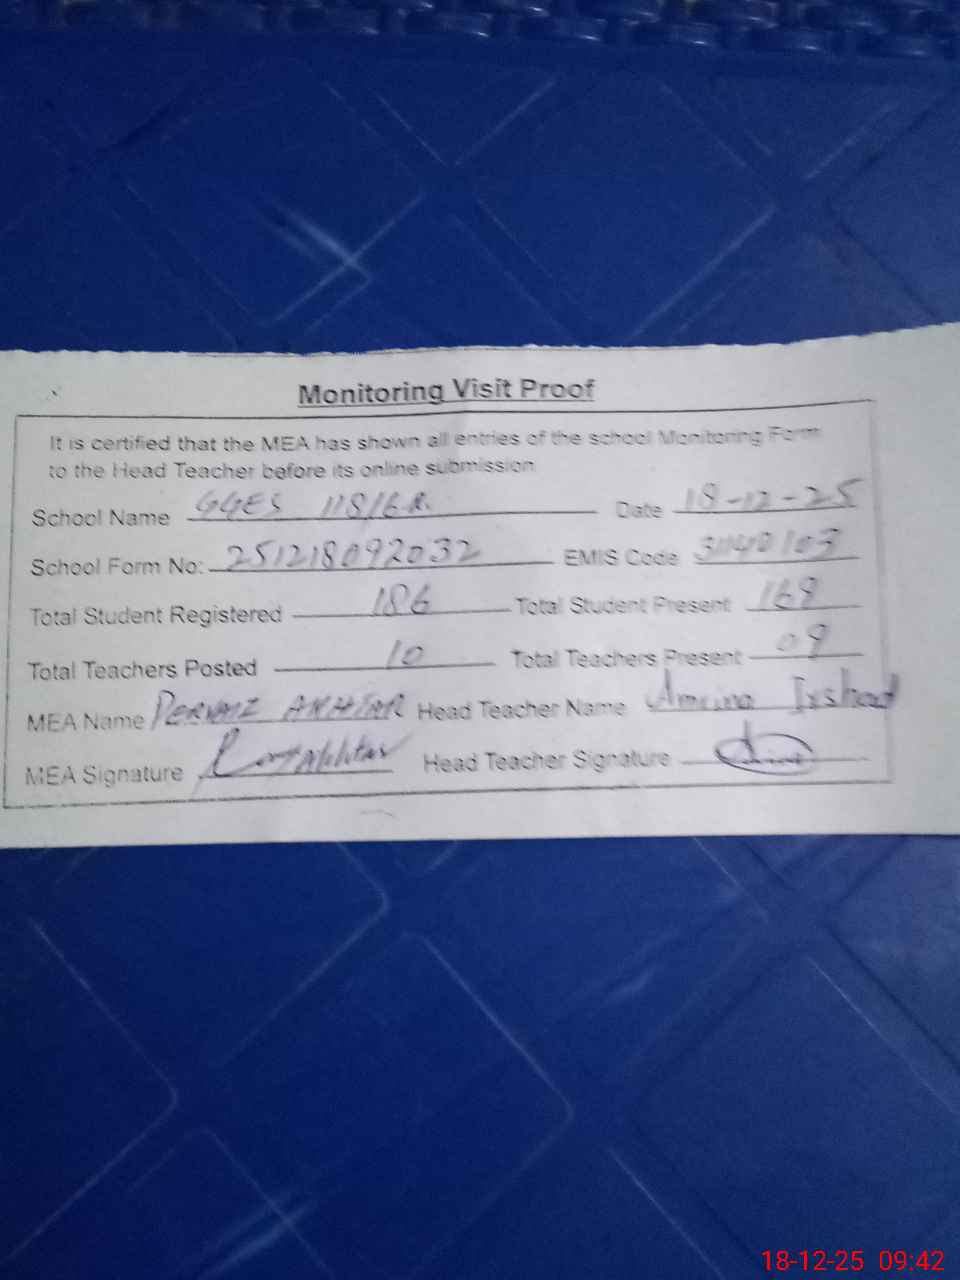 Monitoring Visit Proof
It is certified that the MEA has shown all entries of the school Monitoring Form
to the Head Teacher before its online submission
School Name GGES 118/6.R. Date 18-12-25
School Form No: 251218092032 EMIS Code 31140103
Total Student Registered 186 Total Student Present 169
Total Teachers Posted 10 Total Teachers Present 09
MEA Name PERVAIZ AKHTAR Head Teacher Name Amrina Irshad
MEA Signature Head Teacher Signature
18-12-25 09:42